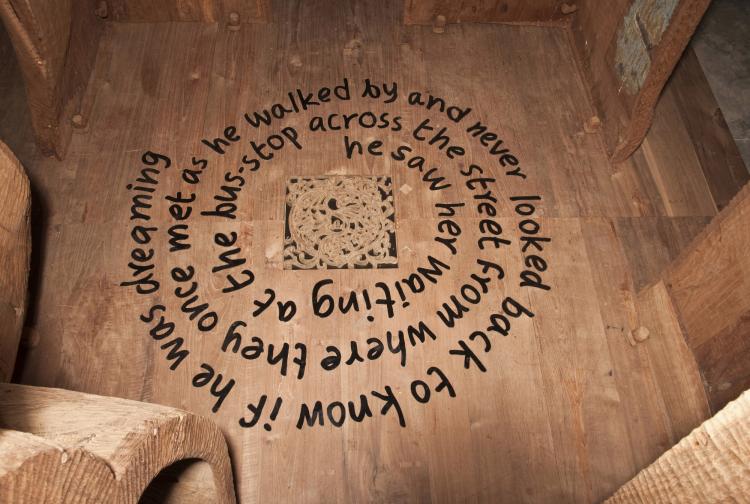 he saw her waiting at the bus-stop across the street from where they once met as he walked by and never looked back to know if he was dreaming